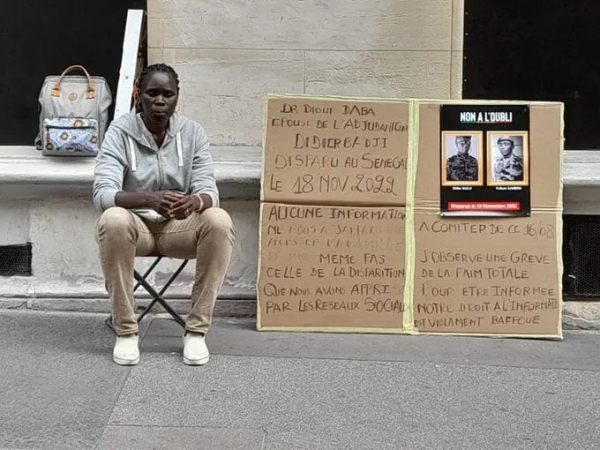 DR DIOUI DABA
EPOUSE DE L'ADJUDANT
DIDIER BADJI
DISPARU AU SENEGAL
LE 18 NOV. 2022
AUCUNE INFORMATION
NE NOUS A JAMAIS
MEME PAS
CELLE DE LA DISPARITION
QUE NOUS AVONS APPRI
PAR LES RESEAUX SOCIAUX
NON A L'OUBLI
Didier BADJI
Fulbert SAMBOU
Disparus le 18 Novembre 2022
A COMITER DE CE 16/08
J OBSERVE UNE GREVE
DE LA FAIM TOTALE
POUR ETRE INFORMEE
NOTRE DROIT A L'INFORMAT
EST VIOLAMENT BAFFOUE